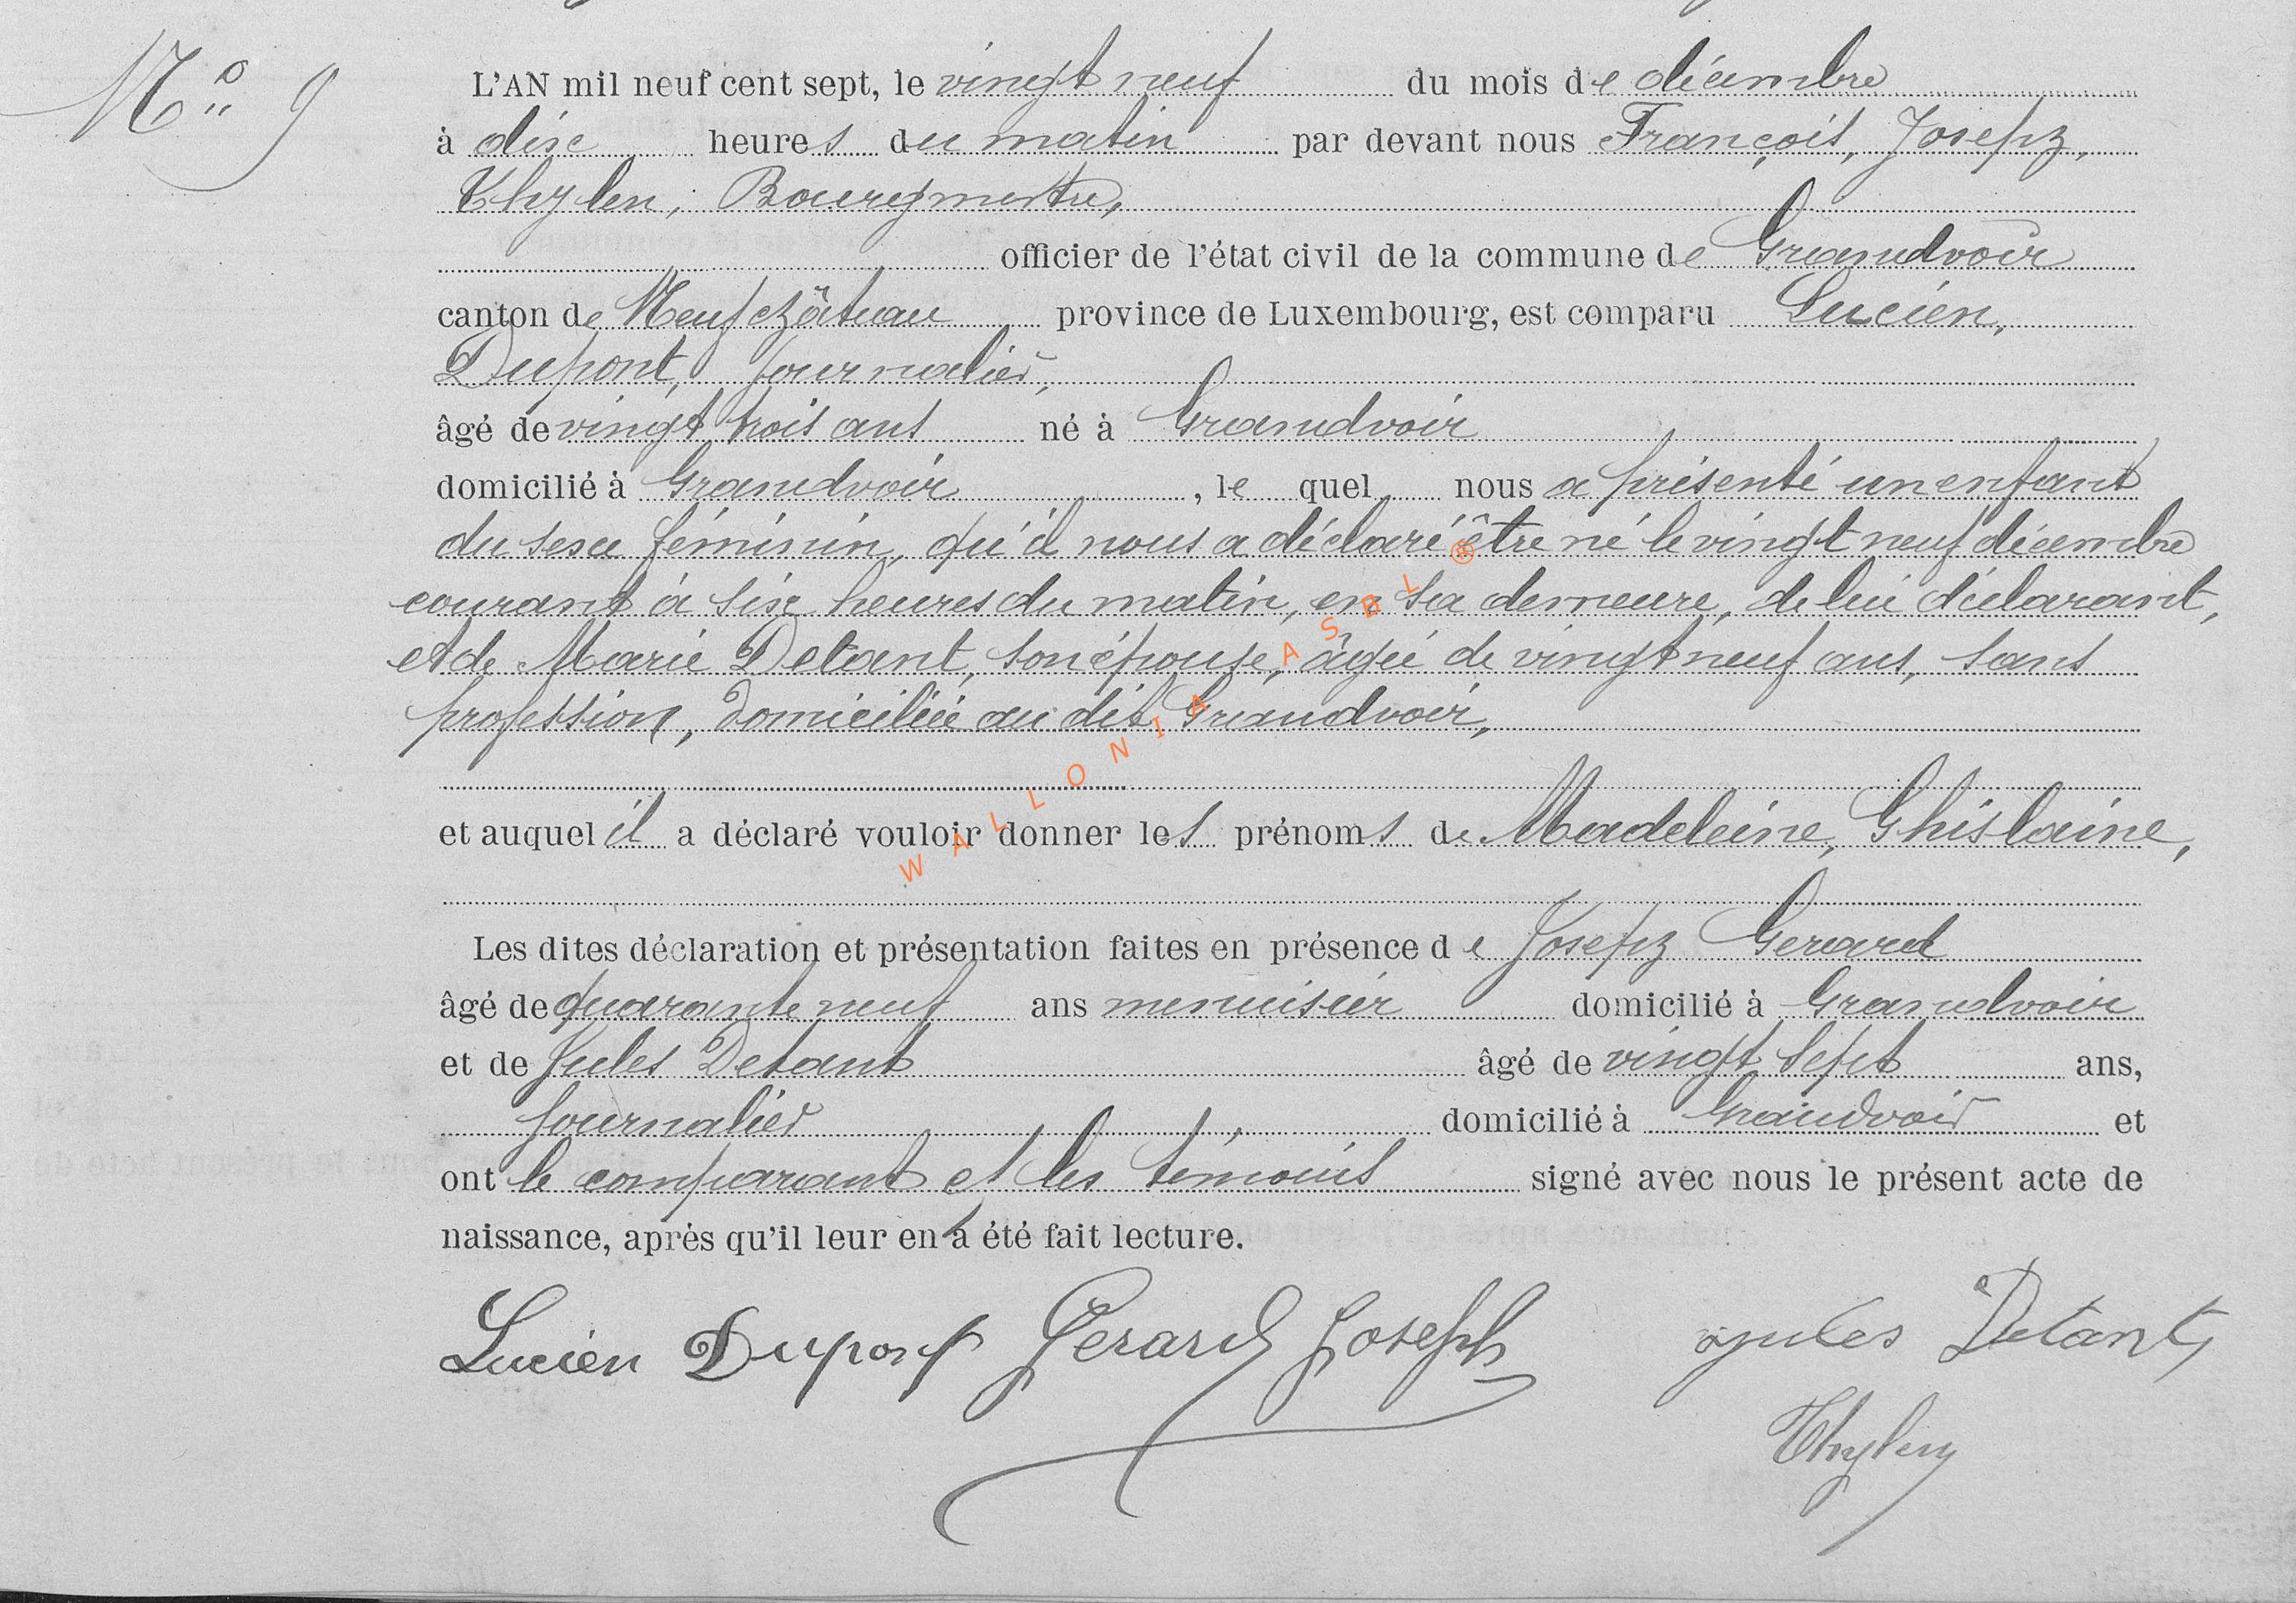 N° 9
L'AN mil neuf cent sept, le vingt neuf du mois de décembre
à dix heures du matin par devant nous François, Joseph,
Thylen, Bourgmestre,
officier de l'état civil de la commune de Grandvoir
canton de Neufchâteau province de Luxembourg, est comparu Lucien,
Dupont, journalier,
âgé de vingt trois ans né à Grandvoir
domicilié à Grandvoir, le quel nous a présenté un enfant
du sexe féminin, qu'il nous a déclaré être né le vingt neuf décembre
courant à six heures du matin, en sa demeure, de lui déclarant,
et de Marie Detant, son épouse, âgée de vingt neuf ans, sans
profession, domiciliée au dit Grandvoir,
et auquel il a déclaré vouloir donner les prénoms de Madeleine, Ghislaine,
Les dites déclaration et présentation faites en présence de Joseph Gerard
âgé de quarante neuf ans menuisier domicilié à Grandvoir
et de Jules Detant âgé de vingt sept ans,
journalier, domicilié à Grandvoir et
ont le comparant et les témoins signé avec nous le présent acte de
naissance, après qu'il leur en a été fait lecture.
Lucien Dupont Gerard Joseph Jules Detant
Thylen
WALLONIA ASBL ®